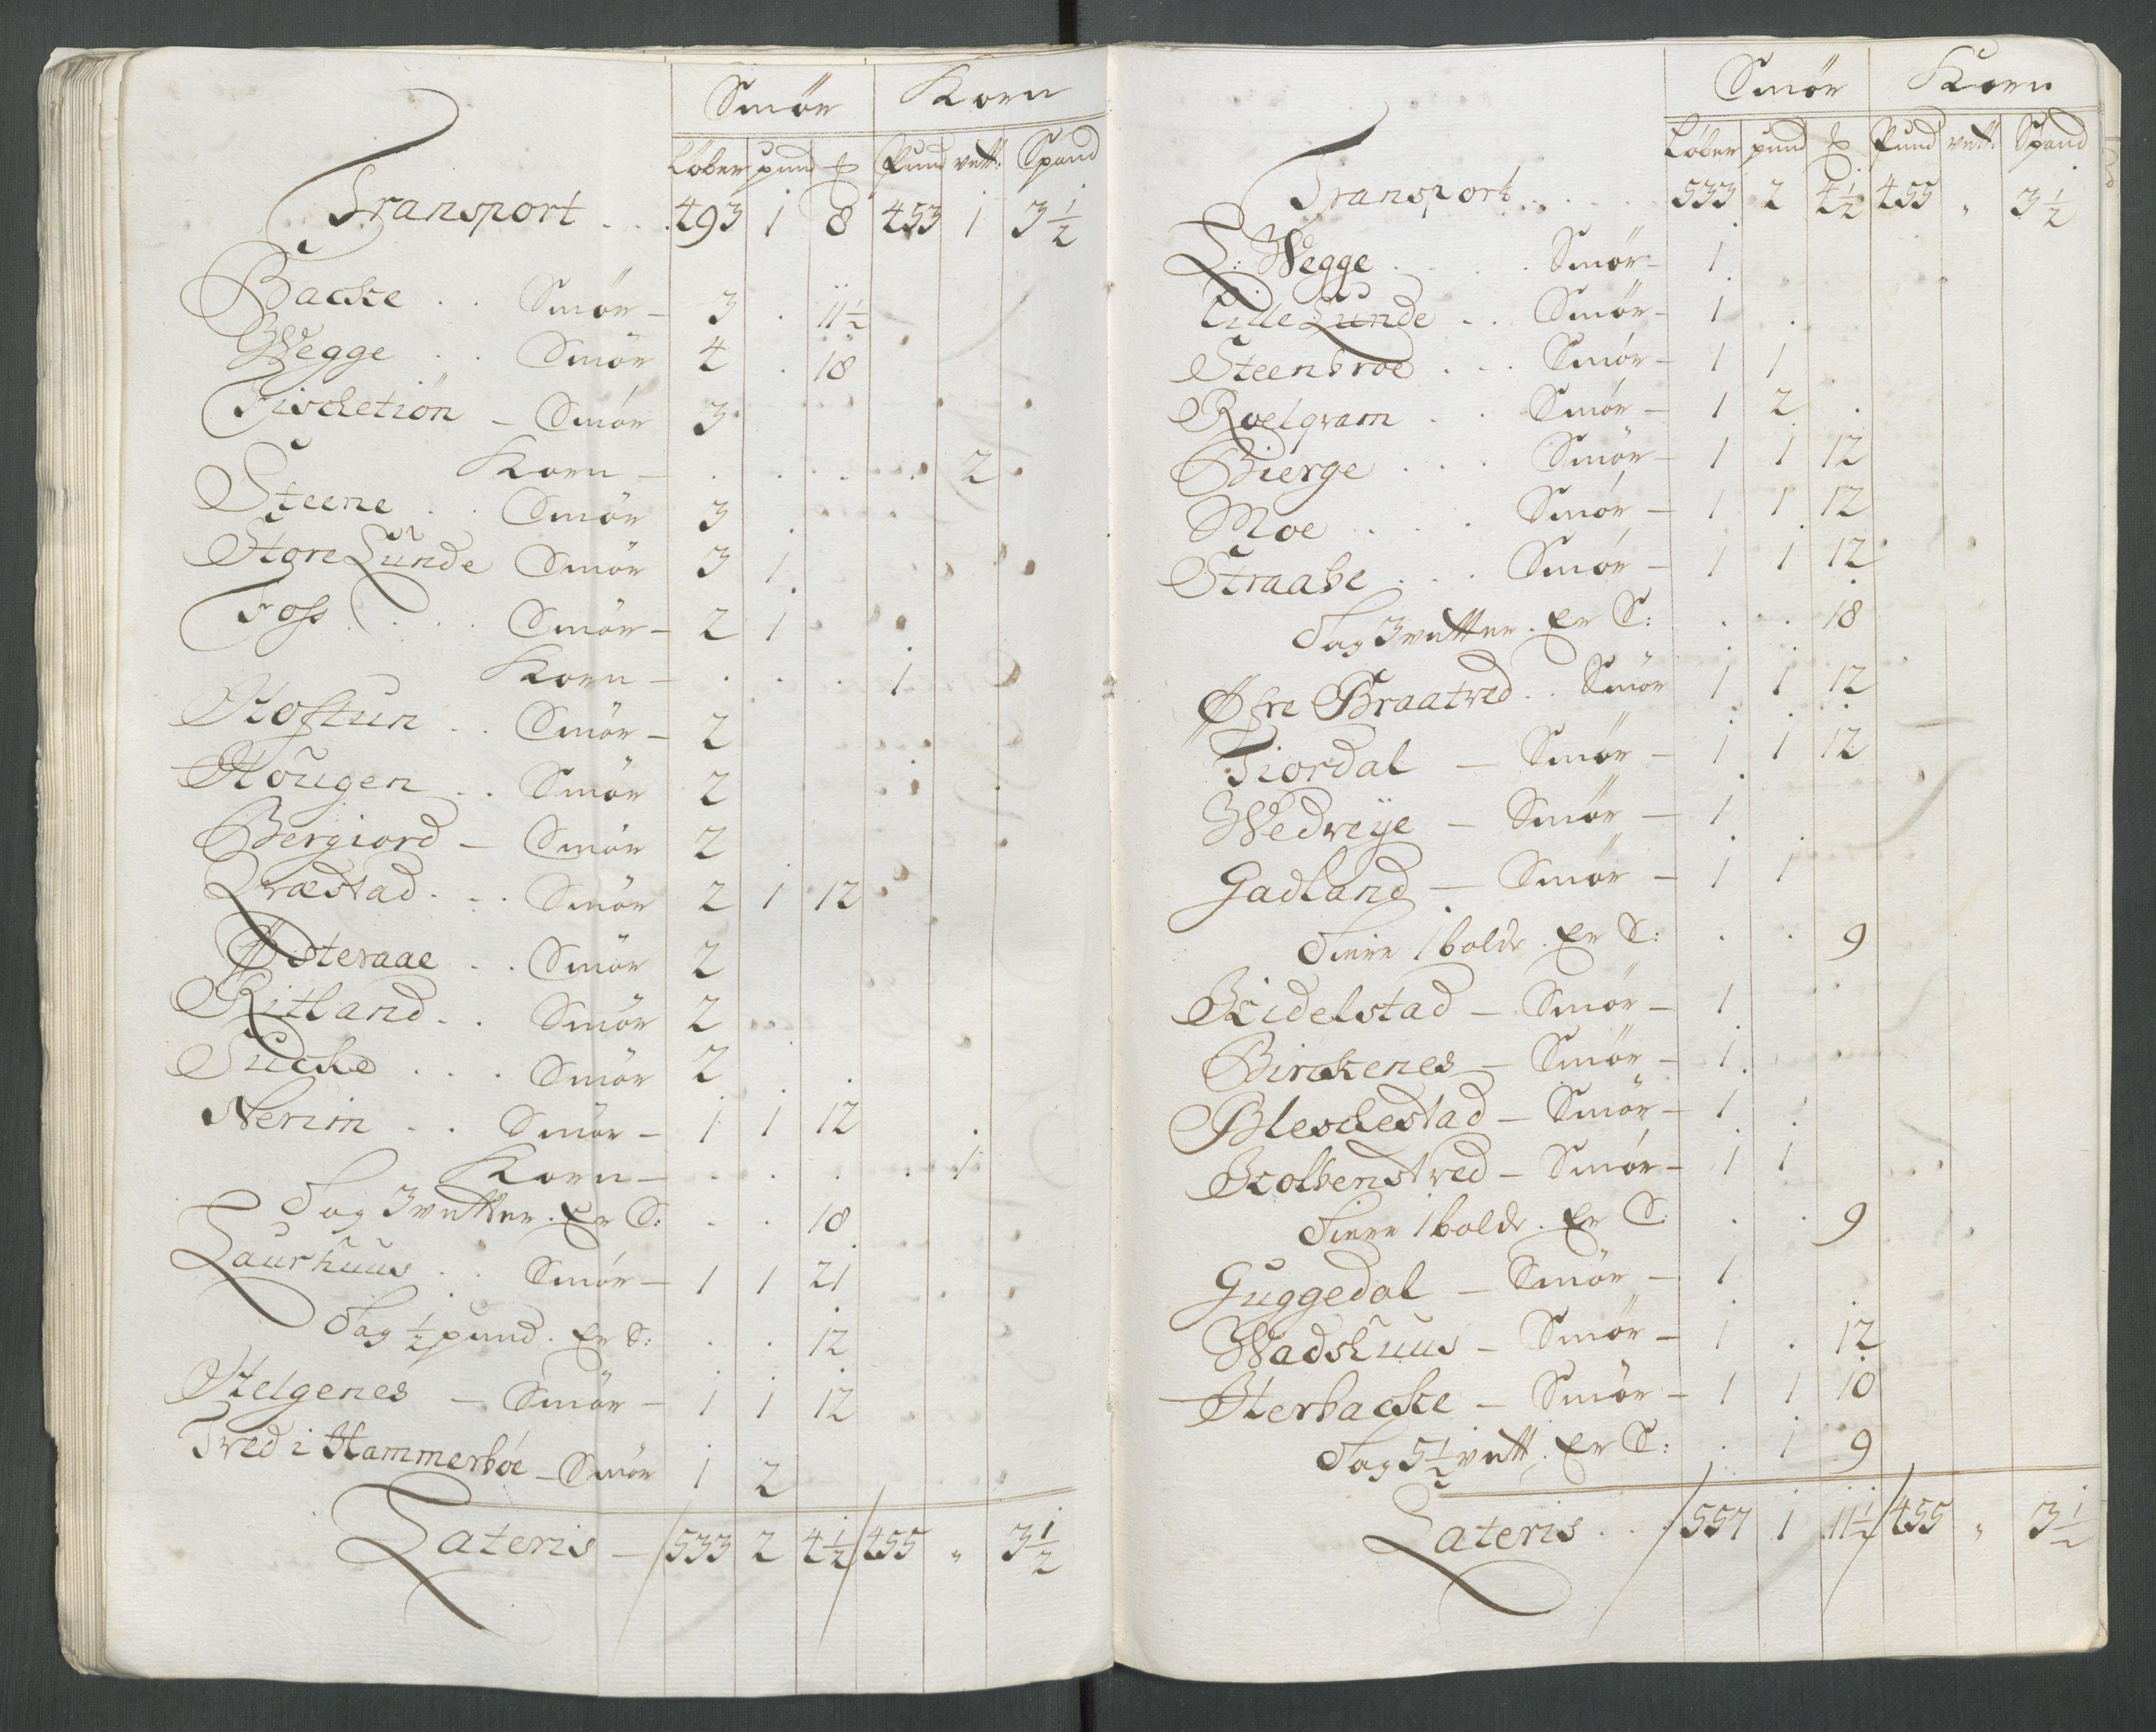 Smör Korn
Løber pund ℔ Pund vett: Spand
Transport . . . 493 1 8 453 1 3 1/2
Backe . . Smör - 3 . 11 1/2
Wegge . . Smör 4 . 18
Fischetiön - Smör 3
Korn - . . . . 2
Steene . . Smör 3
Store Lunde Smör 3 1
Foss . . . Smör - 2 1
Korn - . . . 1
Hoftun . . Smör - 2
Hougen . . Smör 2
Bergiord - Smör 2
Qvæstad . . . Smör 2 1 12
Østeraae . . Smör 2
Ritland . . Smör 2
Sucke . . . Smör 2
Nerim . . Smör - 1 1 12
Korn - . . . . 1
Tag 3 vetter. Er S: . . 18
Laurhuus . . Smör - 1 1 21
Tag 1/2 pund. Er S: . . 12
Helgenes - Smör - 1 1 12
Tved i Hammerböe - Smör 1 2
Lateris - 533 2 4 1/2 455 " 3 1/2
Smör Korn
Løber pund ℔ Pund vett: Spand
Transport . . . . . 533 2 4 1/2 455 " 3 1/2
L: Wegge . . . . Smör - 1
Lille Lunde . . Smör - 1
Steenbroe . . . Smör - 1 1
Roelqvam . . Smör - 1 2
Bierge . . . Smör - 1 1 12
Moe . . . Smör - 1 1 12
Straabe . . . Smör - 1 1 12
Tag 3 vetter. Er S: . . 18
Øfre Braatved . . Smör 1 1 12
Fiordal - Smör - 1 1 12
Wedvije - Smör - 1
Gadland - Smör - 1 1
Tiere 1 bolde. Er S: . . 9
Kidelstad - Smör - 1
Birckenes - Smör - 1
Bleschestad - Smör - 1
Kolbenstved - Smör - 1 1
Tiere 1 bolde. Er S: . . 9
Guggedal - Smör - 1
Wadshuus - Smör - 1 . 12
Herbacke - Smör - 1 1 10
Tag 5 1/2 vett. Er S: . 1 9
Lateris . . . 557 1 11 1/2 455 " 3 1/2